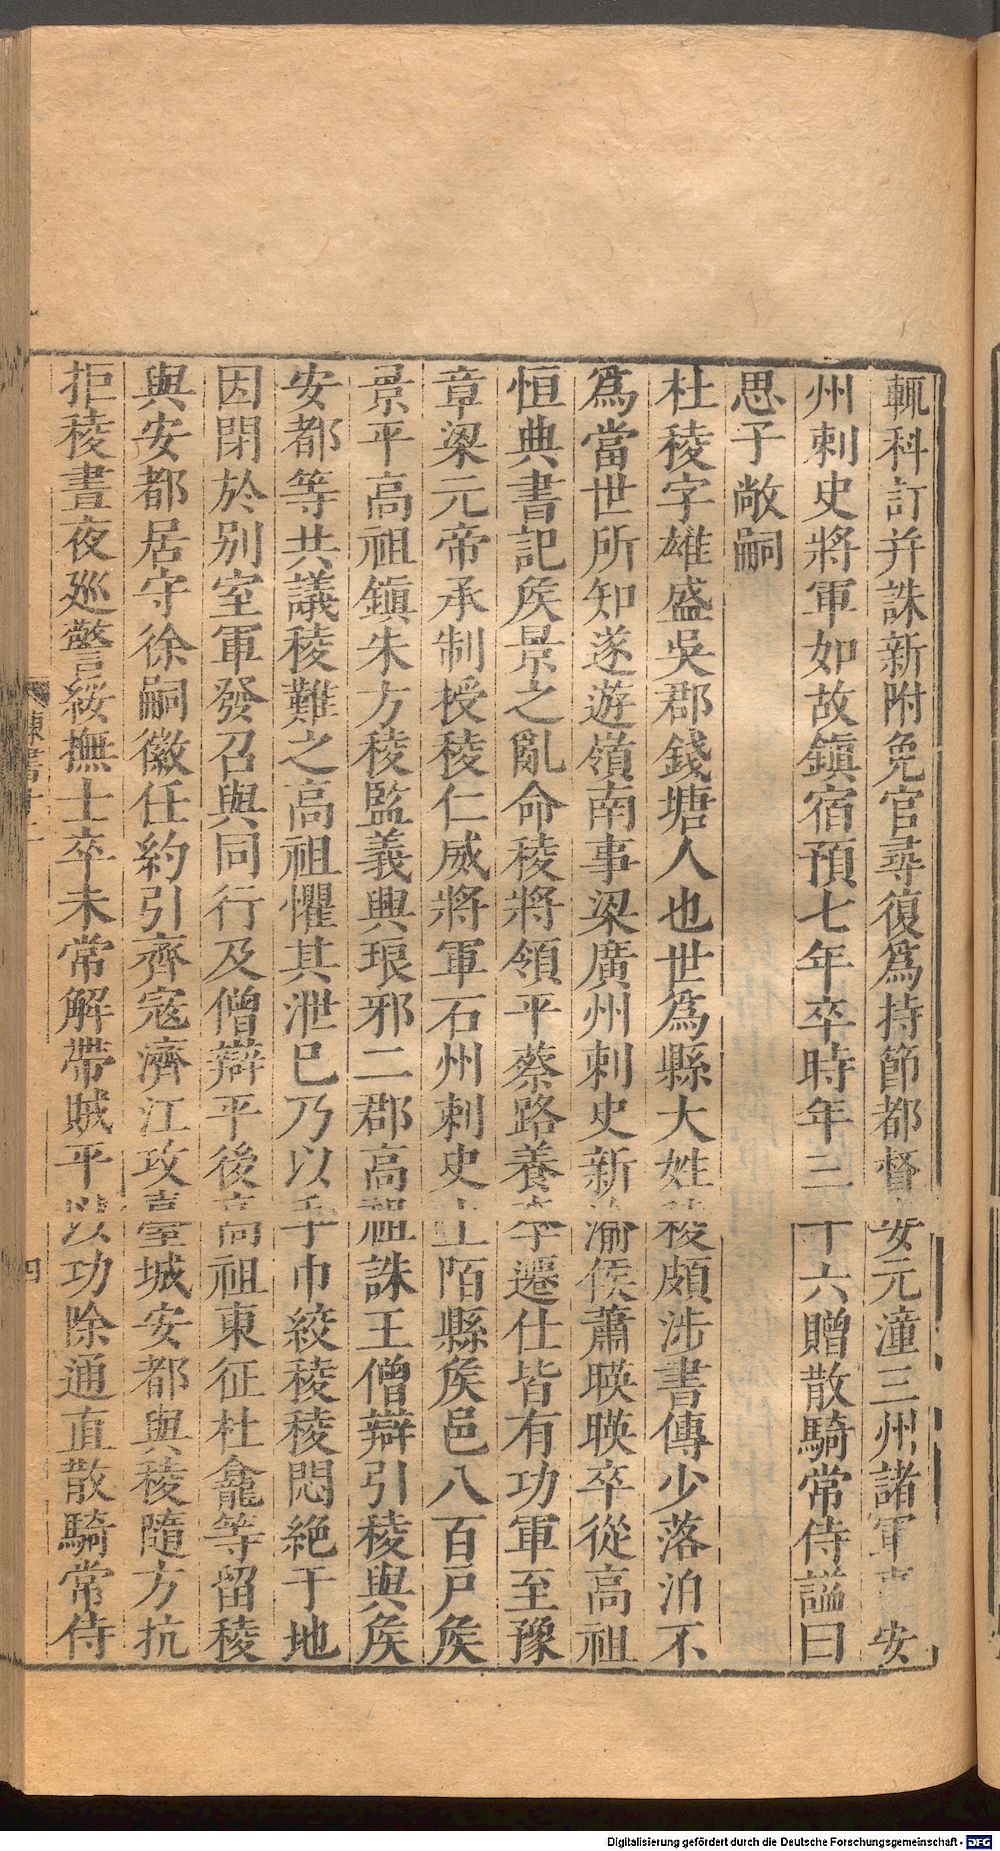 輒科訂并誅新附免官尋復爲持節都督安元潼三州諸軍事安
州刺史將軍如故鎮宿預七年卒時年三十六贈散騎常侍諡曰
思子敞嗣
杜稜字雄盛吳郡錢塘人也世爲縣大姓稜頗涉書傳少落泊不
爲當世所知遂遊嶺南事梁廣州刺史新渝侯蕭暎暎卒從高祖
恒典書記矦景之亂命稜將領平蔡路養李遷仕皆有功軍至豫
章梁元帝承制授稜仁威將軍石州刺史上陌縣矦邑八百戸矦
景平高祖鎮朱方稜監義興琅邪二郡高祖誅王僧辯引稜與矦
安都等共議稜難之高祖懼其泄巳乃以手巾絞稜稜悶絕于地
因閉於別室軍發召與同行及僧辯平後高祖東征杜龕等留稜
與安都居守徐嗣徽任約引齊寇濟江攻臺城安都與稜隨方抗
拒稜晝夜巡警綏撫士卒未常解帶賊平以功除通直散騎常侍
四
Digitalisierung gefördert durch die Deutsche Forschungsgemeinschaft - DFG